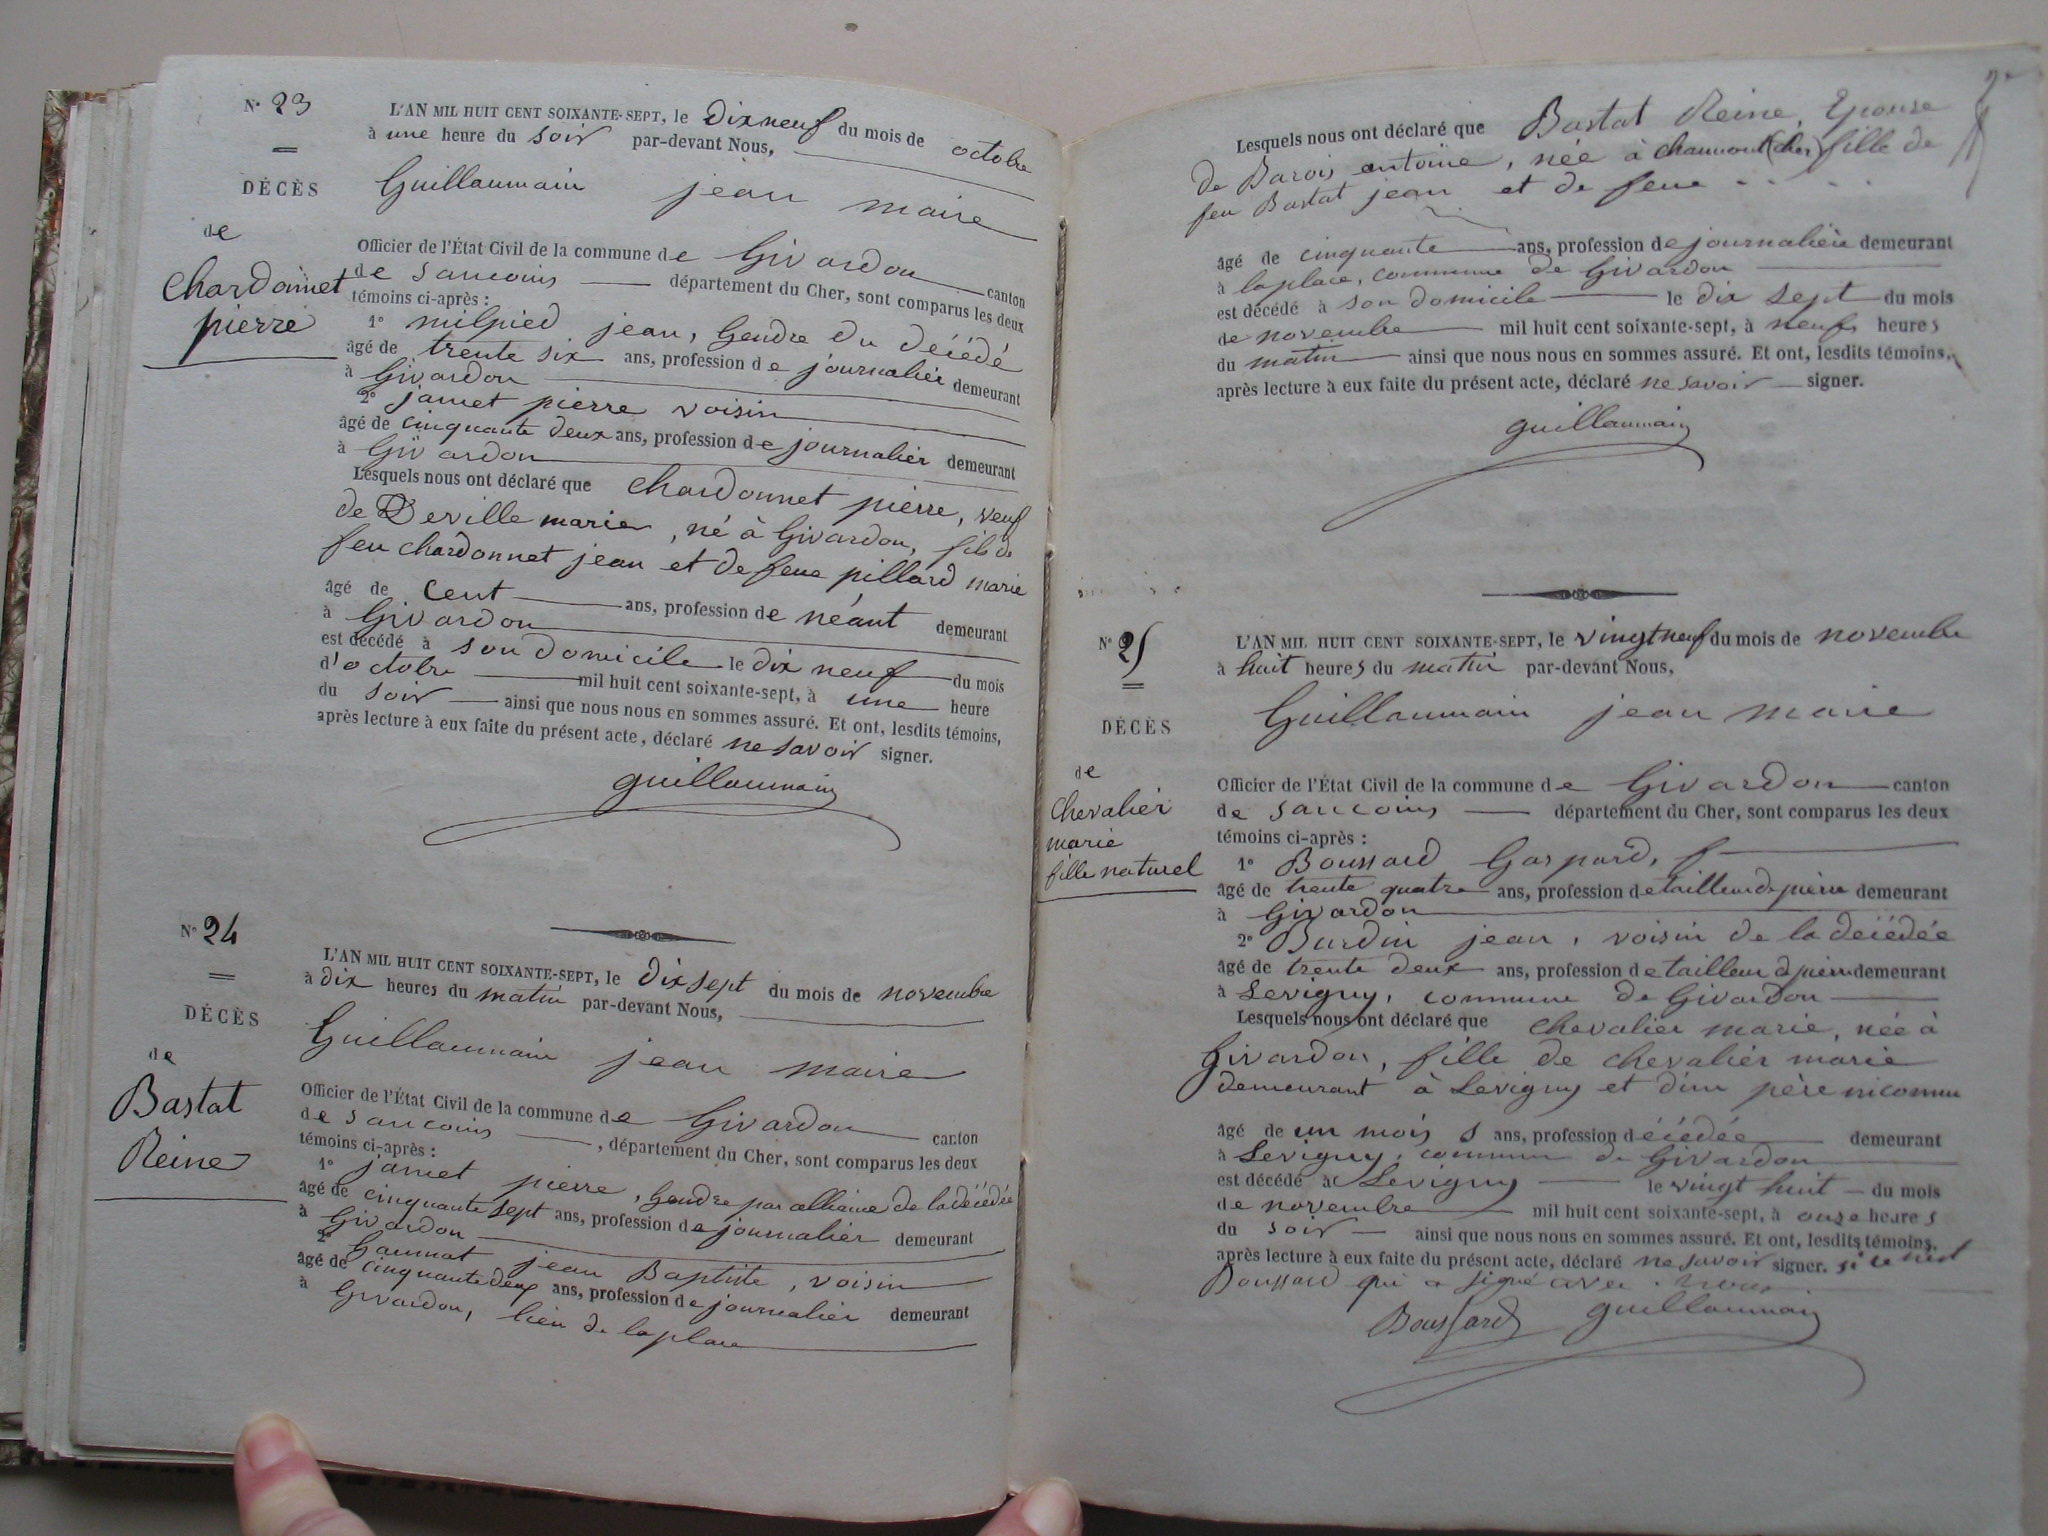 N° 23
DÉCÈS
de
Chardonnet
pierre
L'AN MIL HUIT CENT SOIXANTE-SEPT, le Dix neuf du mois de octobre
à une heure du soir par-devant Nous,
Guillaumain jean maire
Officier de l'État Civil de la commune de Givardon canton
de sancoins département du Cher, sont comparus les deux
témoins ci-après :
1° milpied jean, Gendre du décédé
âgé de trente six ans, profession de journalier demeurant
à Givardon
2° jamet pierre voisin
âgé de cinquante deux ans, profession de journalier demeurant
à Givardon
Lesquels nous ont déclaré que Chardonnet pierre, veuf
de Deville marie, né à Givardon, fils de
feu chardonnet jean et de feue pillard marie
âgé de cent ans, profession de néant demeurant
à Givardon
est décédé à son domicile le dix neuf du mois
d'octobre mil huit cent soixante-sept, à une heure
du soir ainsi que nous nous en sommes assuré. Et ont, lesdits témoins,
après lecture à eux faite du présent acte, déclaré ne savoir signer.
guillaumain
N° 24
DÉCÈS
de
Bastat
Reine
L'AN MIL HUIT CENT SOIXANTE-SEPT, le Dix sept du mois de novembre
à dix heures du matin par-devant Nous,
Guillaumain jean maire
Officier de l'État Civil de la commune de Givardon canton
de sancoins, département du Cher, sont comparus les deux
témoins ci-après :
1° jamet pierre, Gendre par alliance de la décédée
âgé de cinquante sept ans, profession de journalier demeurant
à Givardon
2° jean Baptiste, voisin
âgé de cinquante deux ans, profession de journalier demeurant
à Givardon, lieu de laplace
Lesquels nous ont déclaré que Bastat Reine, Epouse
de Barois antoine, née à chaumont (cher) fille de
feu Bastat jean et de feue . . . .
âgé de cinquante ans, profession de journalière demeurant
à laplace, commune de Givardon
est décédé à son domicile le dix sept du mois
de novembre mil huit cent soixante-sept, à neuf heures
du matin ainsi que nous nous en sommes assuré. Et ont, lesdits témoins,
après lecture à eux faite du présent acte, déclaré ne savoir signer.
guillaumain
N° 25
DÉCÈS
de
Chevalier
marie
fille naturel
L'AN MIL HUIT CENT SOIXANTE-SEPT, le vingt neuf du mois de novembre
à huit heures du matin par-devant Nous,
Guillaumain jean maire
Officier de l'État Civil de la commune de Givardon canton
de sancoins département du Cher, sont comparus les deux
témoins ci-après :
1° Boussard Gaspard,
âgé de trente quatre ans, profession de tailleur de pierre demeurant
à Givardon
2° Burdin jean, voisin de la décédée
âgé de trente deux ans, profession de tailleur d pierre demeurant
à Levigny, commune de Givardon
Lesquels nous ont déclaré que chevalier marie, née à
Givardon, fille de chevalier marie
demeurant à Levigny et d'un père inconnu
âgé de un mois ans, profession décédée demeurant
à Levigny, commune de Givardon
est décédé à Levigny le vingt huit du mois
de novembre mil huit cent soixante-sept, à onze heures
du soir ainsi que nous nous en sommes assuré. Et ont, lesdits témoins,
après lecture à eux faite du présent acte, déclaré ne savoir signer. si ce n'est
Boussard qui a signé avec nous
Boussard guillaumain